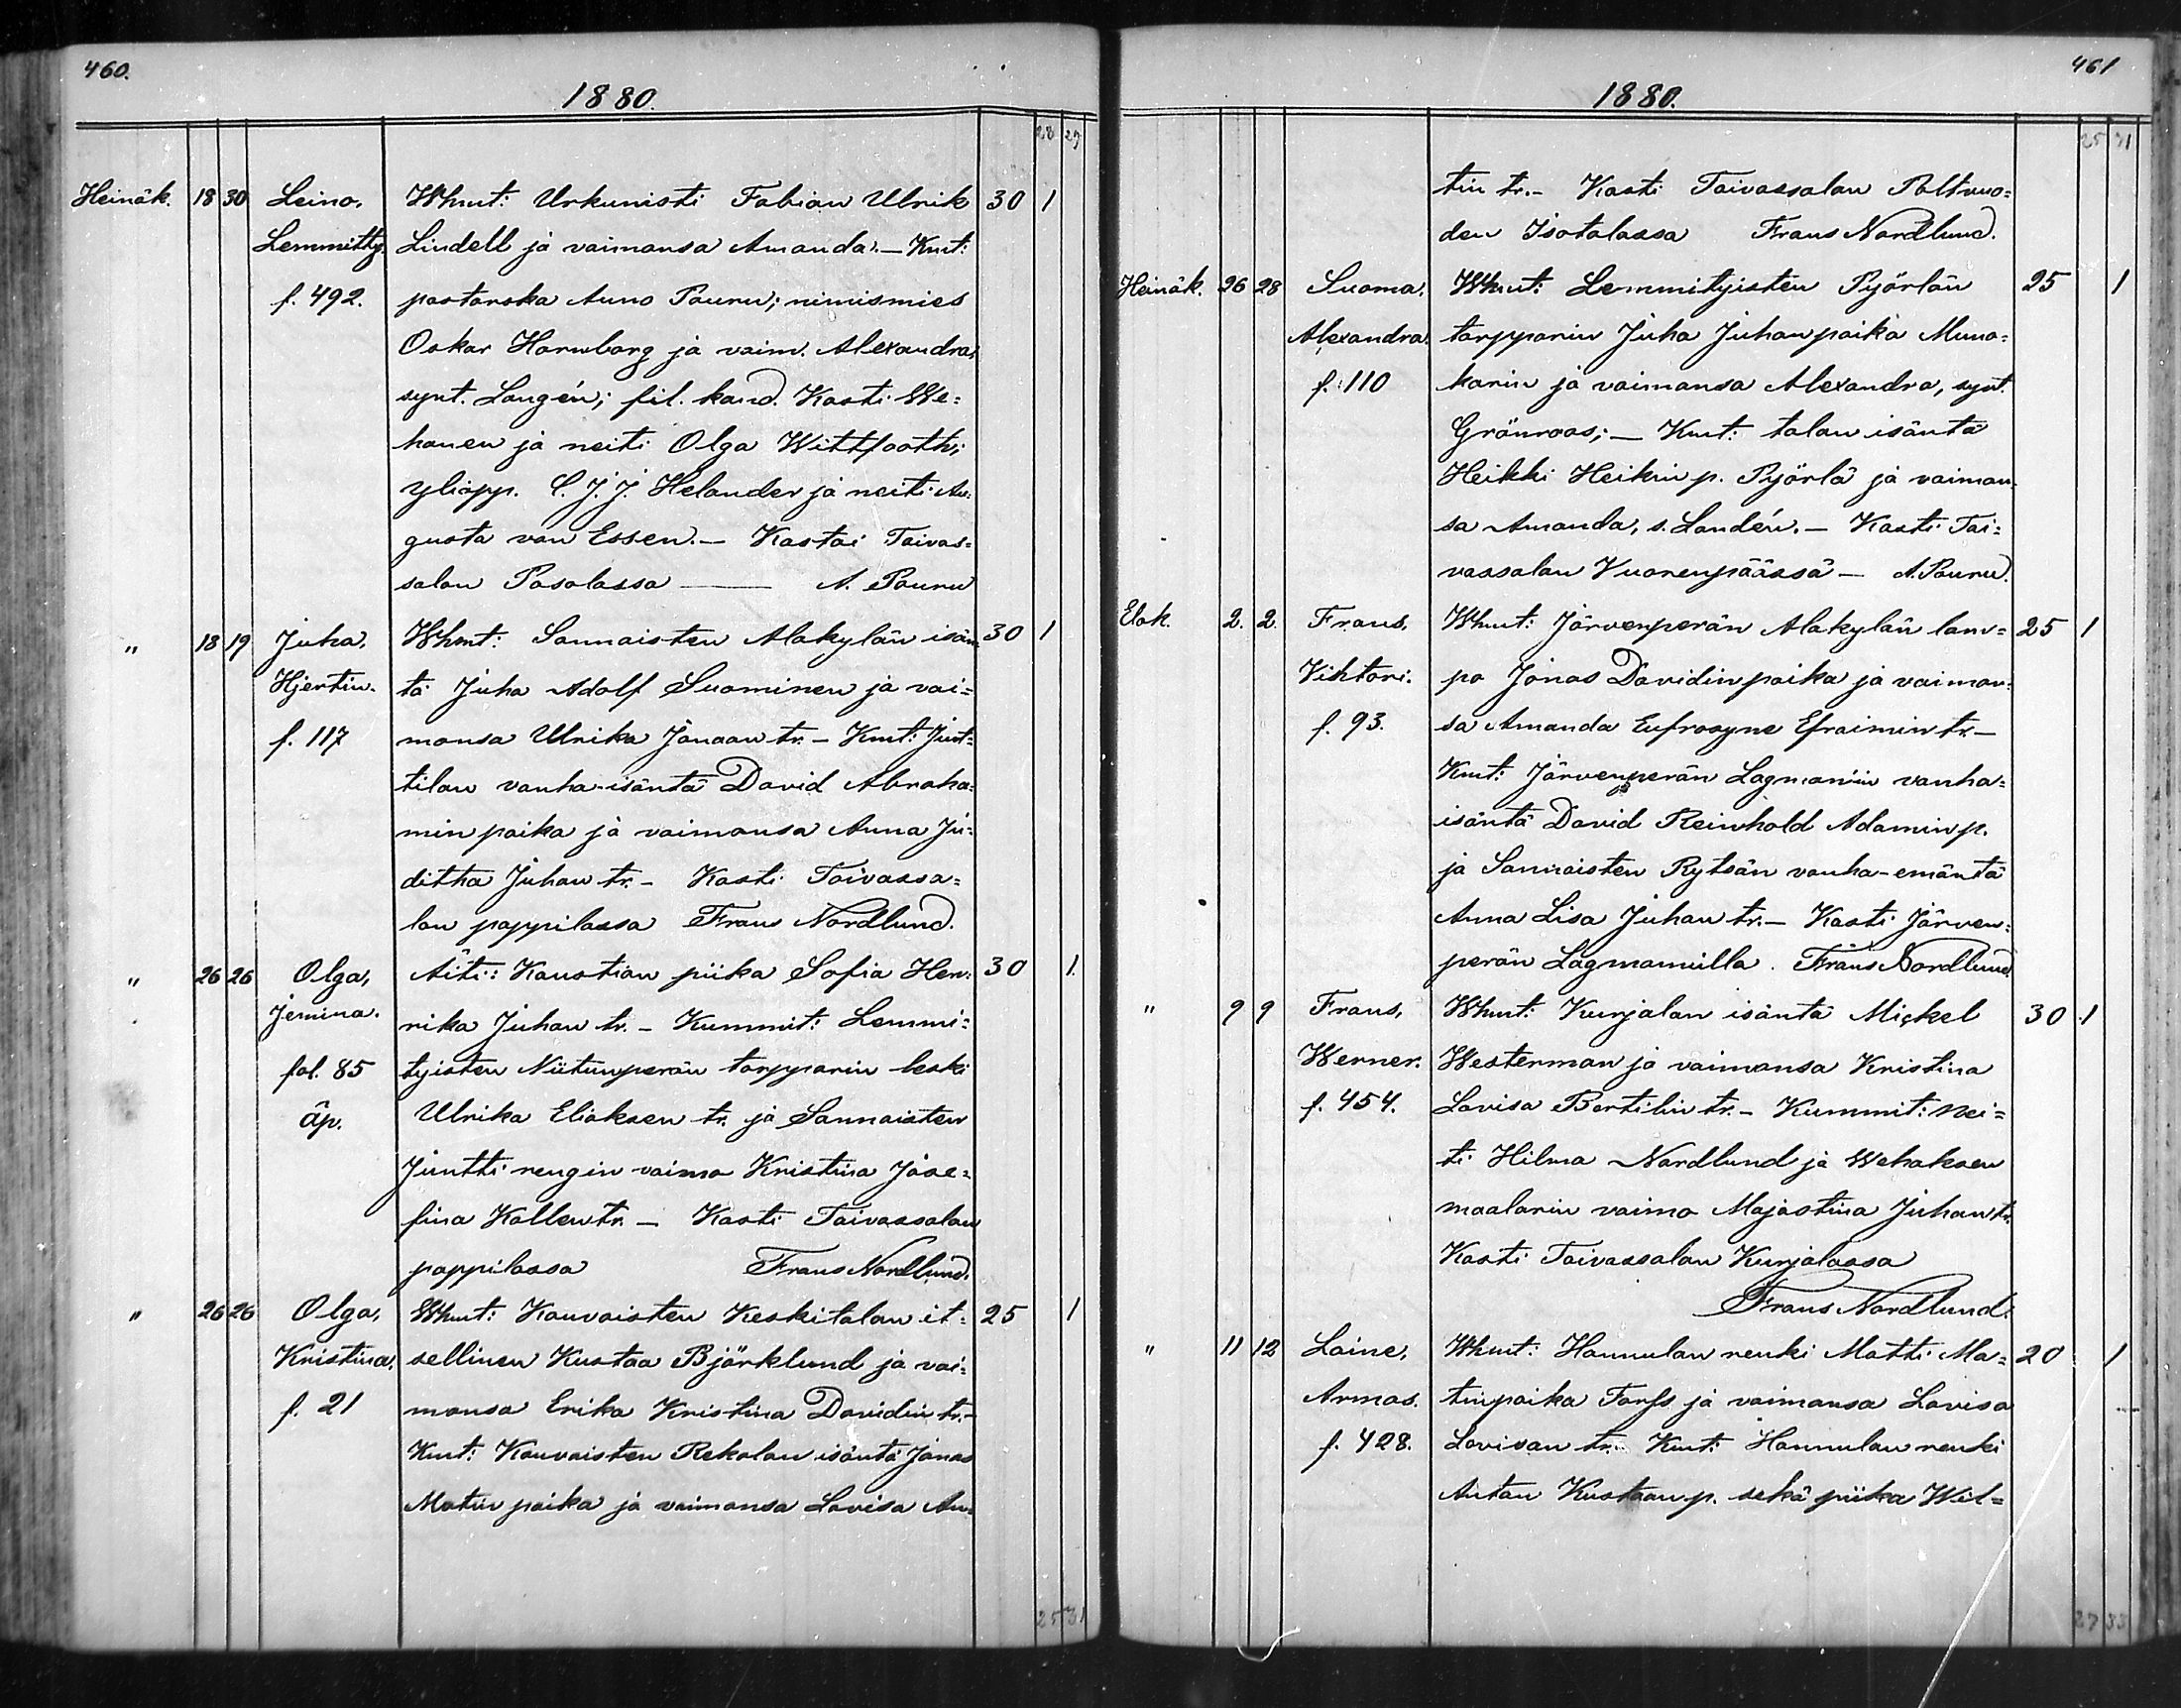 460.
1880.
28 29
Heinäk. 18 30 Leino, Whmt: Urkunisti Fabian Ulrik 30 1
Lemmitty. Lindell ja vaimonsa Amanda. — Kmt:
f. 492. pastorska Auno Pauru; nimismies
Oskar Hornborg ja vaim. Alexandra,
synt. Langén; fil. kand. Kosti We=
hanen ja neiti Olga Wittfooth;
yliopp. C. J. J. Helander ja neiti Au=
gusta von Essen. — Kastoi Taivas=
salon Pasolassa — A. Pauru
" 18 19 Juha, Whmt: Sannaisten Alakylän isän= 30 1
Hjertin. tä Juha Adolf Suominen ja vai=
f. 117 monsa Ulrika Jonaan tr. — Kmt: Junt=
tilan vanha-isäntä David Abraha=
min poika ja vaimonsa Anna Ju=
ditha Juhan tr. — Kasti Taivassa=
lon pappilassa Frans Nordlund.
" 26 26 Olga, Äiti: Kaustion piika Sofia Hen= 30 1.
Jemina. rika Juhan tr. — Kummit: Lemmi=
fol. 85 tyisten Niitunperän torpparin leski
äp. Ulrika Eliaksen tr. ja Sannaisten
Juntti rengin vaimo Kristina Jose=
fina Kallen tr. — Kasti Taivassalon
pappilassa Frans Nordlund.
" 26 26 Olga, Whmt: Kauvaisten Keskitalon it= 25 1
Kristina. sellinen Kustaa Björklund ja vai=
f. 21 monsa Erika Kristina Davidin tr. —
Kmt: Kauvaisten Rekolan isäntä Jonas
Matin poika ja vaimonsa Lovisa An=
25 31
461
1880.
25 31
tin tr. — Kasti Taivassalon Poltvuo=
den Isotalossa Frans Nordlund.
Heinäk. 26 28 Suoma, Whmt: Lemmityisten Pyörlän 25 1
Alexandra. torpparin Juha Juhanpoika Muna=
f. 110 karin ja vaimonsa Alexandra, synt.
Grönroos; — Kmt: talon isäntä
Heikki Heikin p. Pyörlä ja vaimon=
sa Amanda, s. Landén. — Kasti Tai=
vassalon Vuorenpäässä — A. Pauru.
Elok. 2. 2. Frans, Whmt: Järvenperän Alakylän lam= 25 1
Vihtori. po Jonas Davidinpoika ja vaimon=
f. 93. sa Amanda Eufrosyne Efraimin tr. —
Kmt: Järvenperän Lagmannin vanha=
isäntä David Reinhold Adamin p.
ja Sannaisten Rytsän vanha-emäntä
Anna Lisa Juhan tr. — Kasti Järven=
perän Lagmannilla. Frans Nordlund
" 9 9 Frans, Whmt: Kurjalan isäntä Mickel 30 1
Werner. Westerman ja vaimonsa Kristina
f. 454. Lovisa Bertilin tr. — Kummit: nei=
ti Hilma Nordlund ja Wehaksen
maalarin vaimo Majastina Juhan tr.
Kasti Taivassalon Kurjalassa
Frans Nordlund.
" 11 12 Laine, Whmt: Hannulan renki Matti Ma= 20 1
Armas. tinpoika Forss ja vaimonsa Lovisa
f. 428. Lovisan tr. Kmt: Hannulan renki
Anton Kustaan p. sekä piika Wil=
27 33